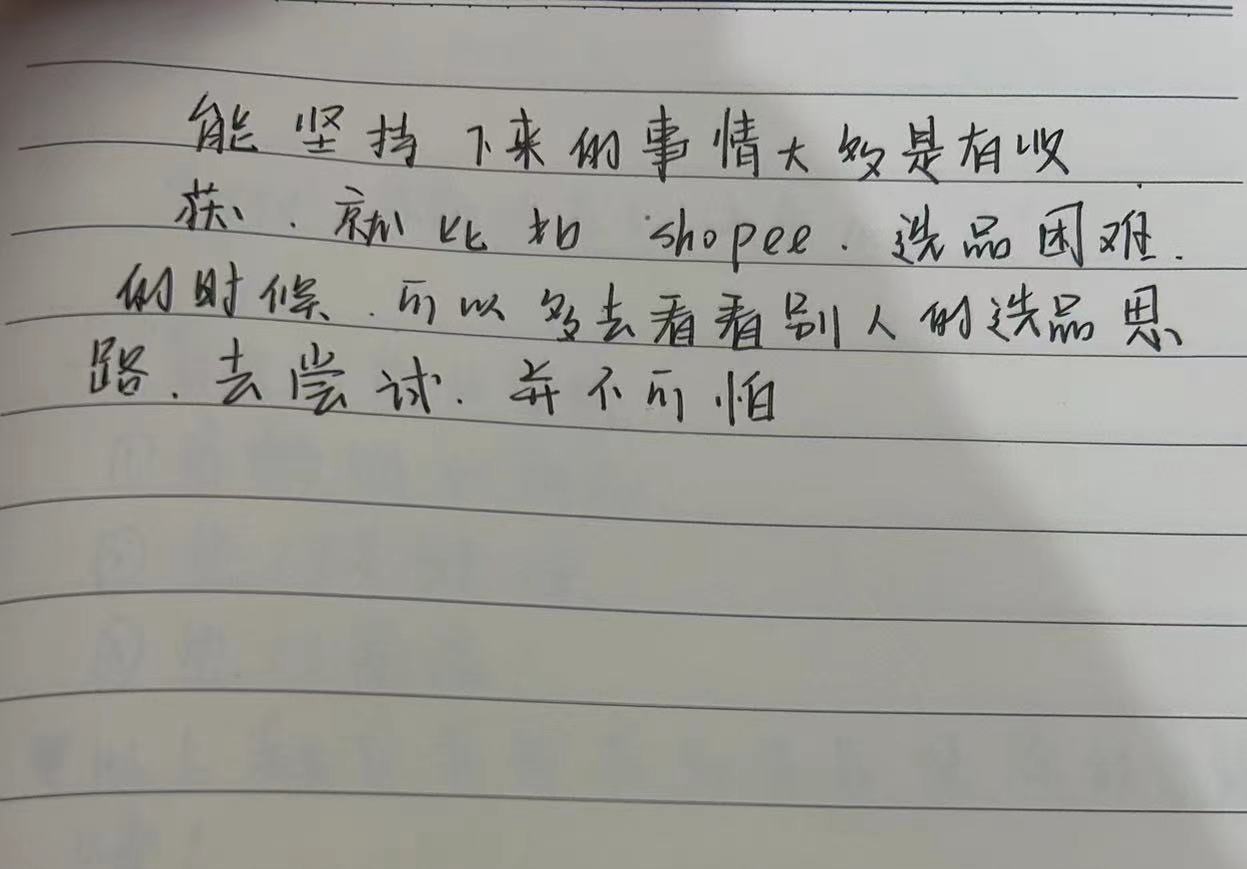 能坚持下来的事情大多是有收
获、就比如 shopee. 选品困难.
的时候.可以多去看看别人的选品思
路.去尝试.并不可怕